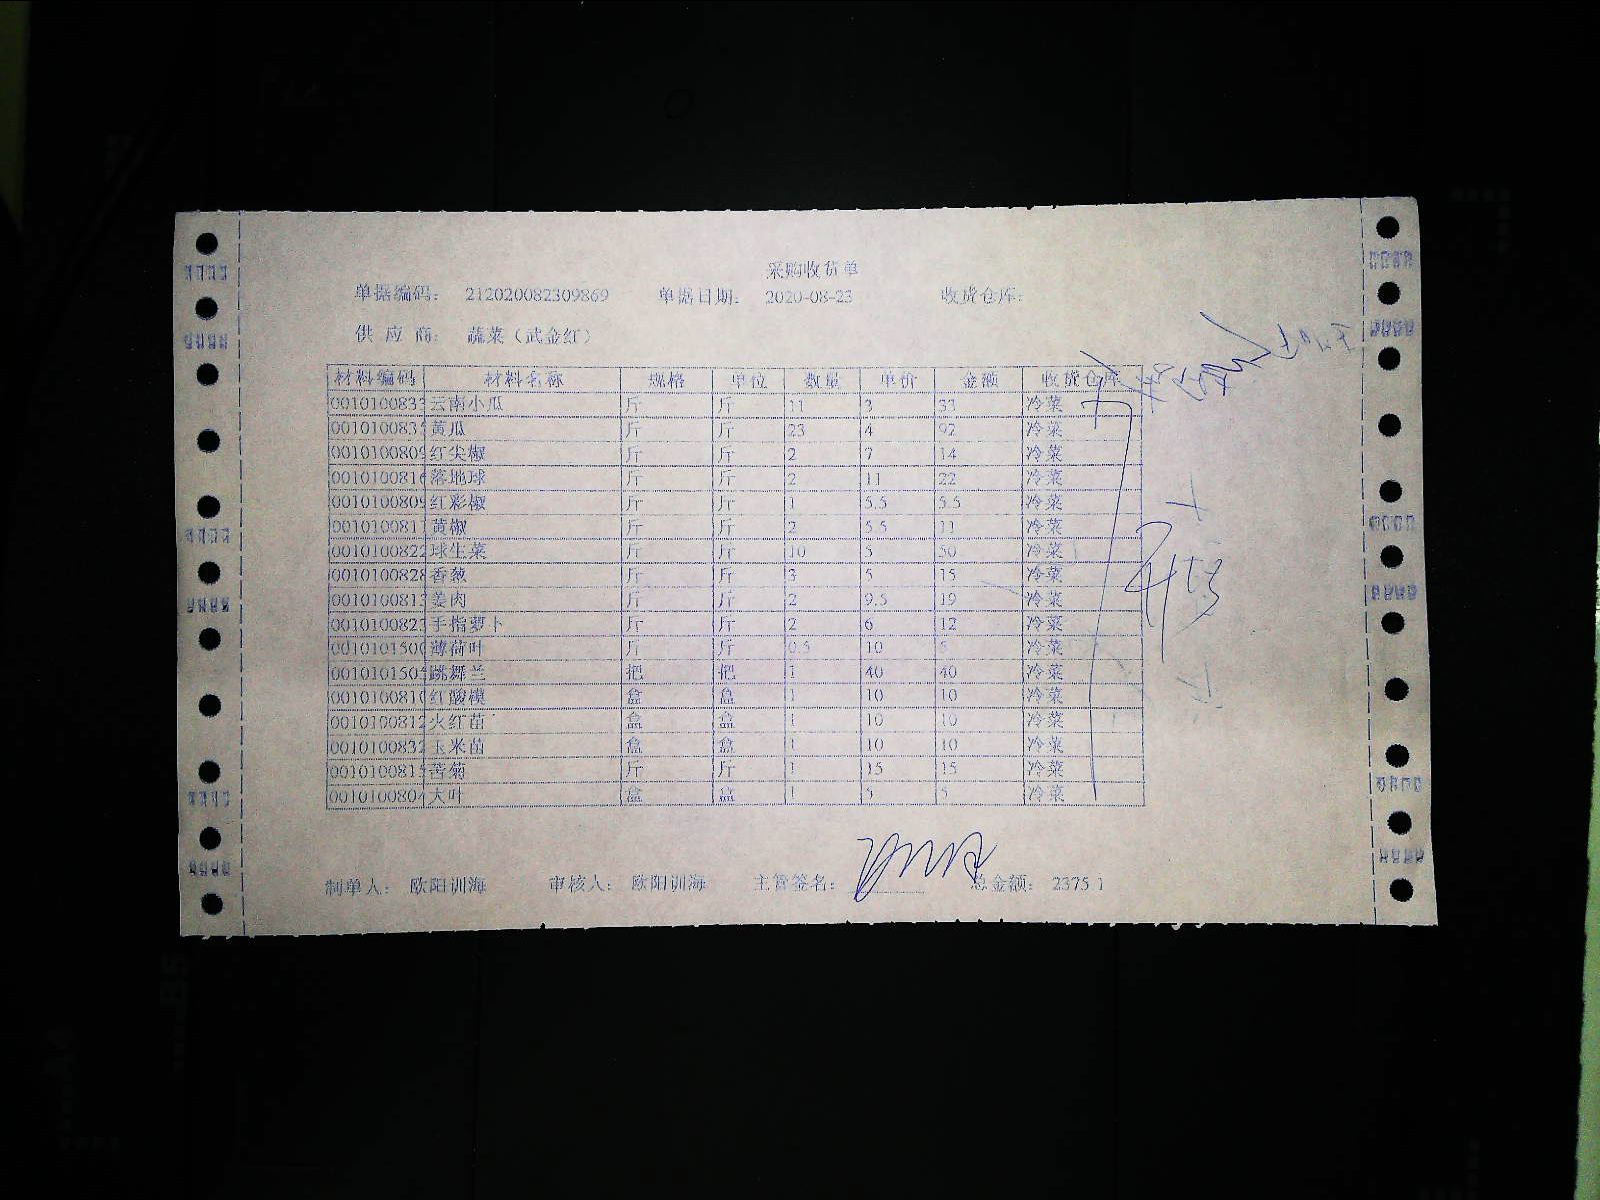 采购收货单
单据编码： 212020082309869 单据日期： 2020-08-23 收货仓库：
供 应 商： 蔬菜（武金红）
材料编码 材料名称 规格 单位 数量 单价 金额 收货仓库
0010100833 云南小瓜 斤 斤 11 3 33 冷菜
001010083 黄瓜 斤 斤 23 4 92 冷菜
001010080 红尖椒 斤 斤 2 7 14 冷菜
001010081 落地球 斤 斤 2 11 22 冷菜
001010080 红彩椒 斤 斤 1 5.5 5.5 冷菜
001010081 黄椒 斤 斤 2 5.5 11 冷菜
0010100822 球生菜 斤 斤 10 5 50 冷菜
001010082 香葱 斤 斤 3 5 15 冷菜
001010081 姜肉 斤 斤 2 9.5 19 冷菜
001010082 手指萝卜 斤 斤 2 6 12 冷菜
001010150 薄荷叶 斤 斤 0.5 10 5 冷菜
001010150 跳舞兰 把 把 1 40 40 冷菜
001010081 红酸模 盒 盒 1 10 10 冷菜
0010100812 火红苗 盒 盒 1 10 10 冷菜
001010083 玉米苗 盒 盒 1 10 10 冷菜
001010081 苦菊 斤 斤 1 15 15 冷菜
001010080 大叶 盒 盒 1 5 5 冷菜
制单人： 欧阳训海 审核人： 欧阳训海 主管签名： 总金额： 2375.1